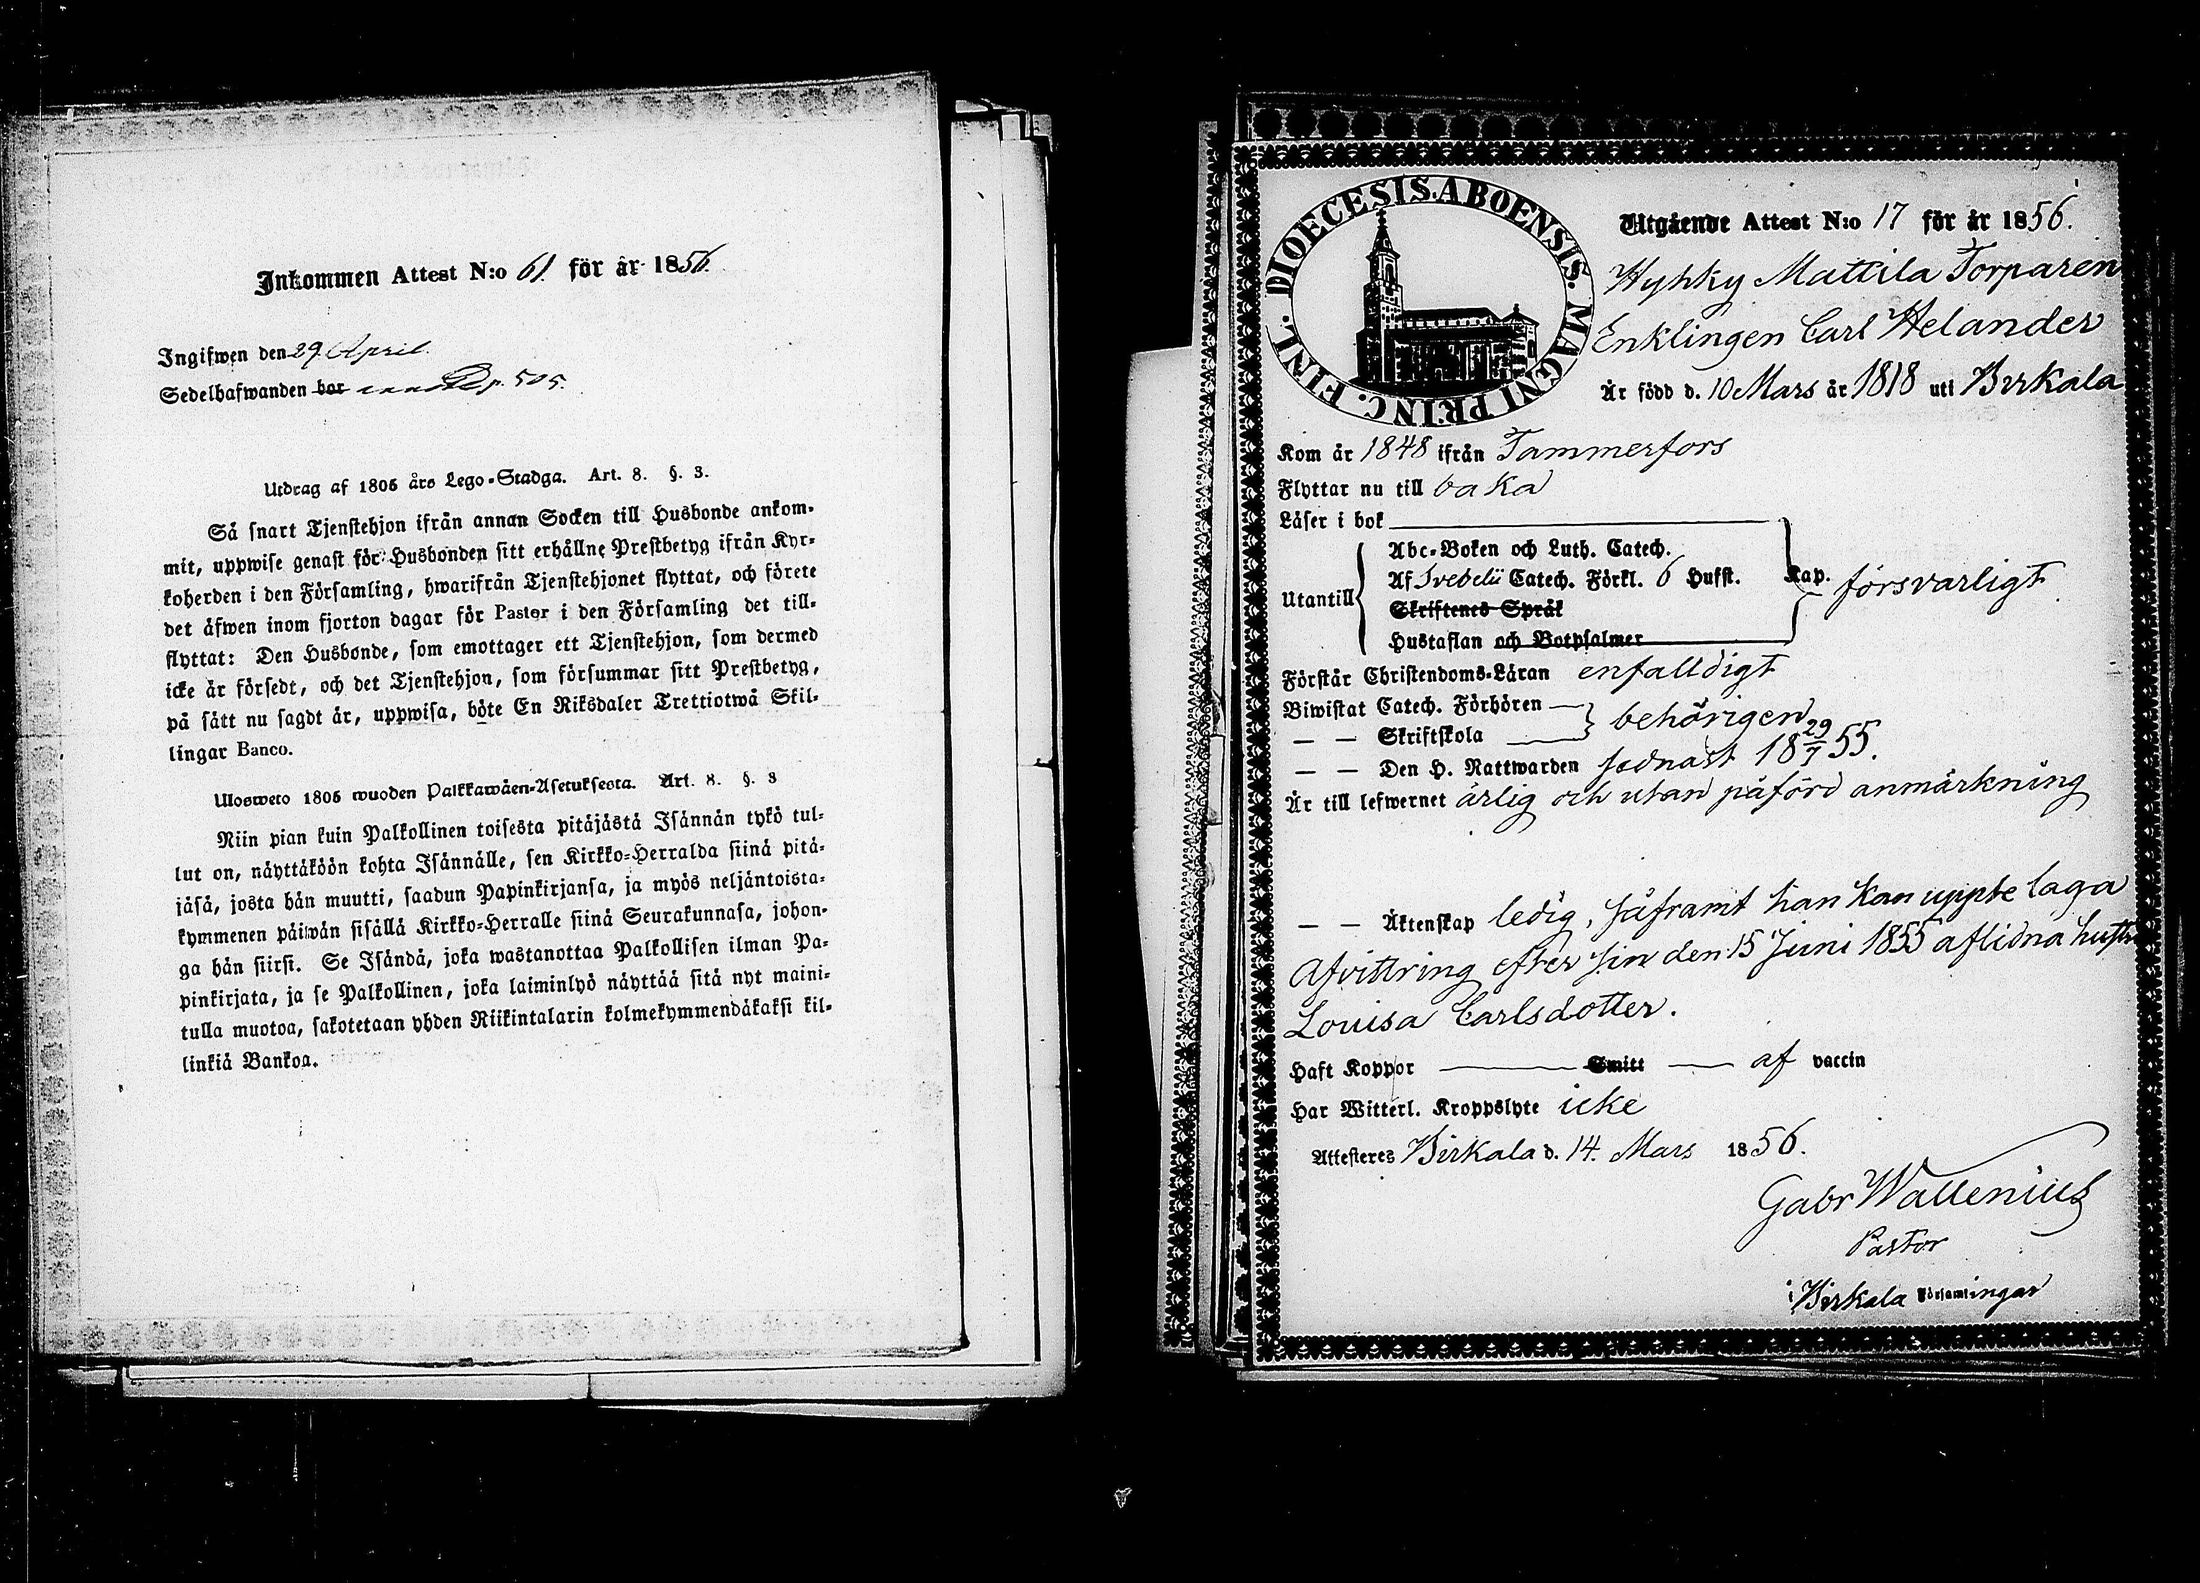 Inkommen Attest N:o 61. för år 1856.
Ingifwen den 29. April.
Sedelhafwanden bor p. 505.
Utdrag af 1805 års Lego-Stadga. Art. 8. §. 3.
Så snart Tjenstehjon ifrån annan Socken till Husbonde ankom-
mit, uppwise genast för Husbonden sitt erhållne Prestbetyg ifrån Kyr-
koherden i den Församling, hwarifrån Tjenstehjonet flyttat, och förete
det äfwen inom fjorton dagar för Pastor i den Församling det till-
flyttat: Den Husbonde, som emottager ett Tjenstehjon, som dermed
icke är försedt, och det Tjenstehjon, som försummar sitt Prestbetyg,
på sätt nu sagdt är, uppwisa, böte En Riksdaler Trettiotwå Skil-
lingar Banco.
Ulosweto 1805 wuoden Palkkawäen-Asetuksesta. Art. 8. §. 3
Niin pian kuin Palkollinen toisesta pitäjästä Isännän tykö tul-
lut on, näyttäköön kohta Isännälle, sen Kirkko-Herralda siinä pitä-
jäsä, josta hän muutti, saadun Papinkirjansa, ja myös neljäntoista-
kymmenen päiwän sisällä Kirkko-Herralle siinä Seurakunnasa, johon-
ga hän siirsi. Se Isändä, joka wastanottaa Palkollisen ilman Pa-
pinkirjata, ja se Palkollinen, joka laiminlyö näyttää sitä nyt maini-
tulla muotoa, sakotetaan yhden Riikintalarin kolmekymmendäkaksi kil-
linkiä Bankoa.
DIOECESIS.ABOENSIS. MAGNI PRINC. FINL.
Utgående Attest N:o 17 för år 1856.
Hyhky Mattila Torparen
Enklingen Carl Helander
Är född d. 10 Mars år 1818 uti Birkala
Kom år 1848 ifrån Tammerfors
Flyttar nu till baka
Läser i bok
Abc-Boken och Luth. Catech.
Af Svebelii Catech. Förkl. 6 Hufst. Kap. försvarligt
Utantill
Skriftenes Språk
Hustaflan och Botpsalmer
Förstår Christendoms-Läran enfalldigt
Biwistat Catech. Förhören
— — Skriftskola behörigen
— — Den H. Nattwarden sednast 18 29/7 55.
Är till lefwernet ärlig och utan påförd anmärkning
— — Äktenskap ledig, såframt han kan uppte laga
Afvittring efter sin den 15 Juni 1855 aflidna hustru
Louisa Carlsdotter.
Haft Koppor Smitt af vaccin
Har Witterl. Kroppslyte icke
Attesteres Birkala d. 14. Mars 1856.
Gabr Wallenius
Pastor
i Birkala Församlingar